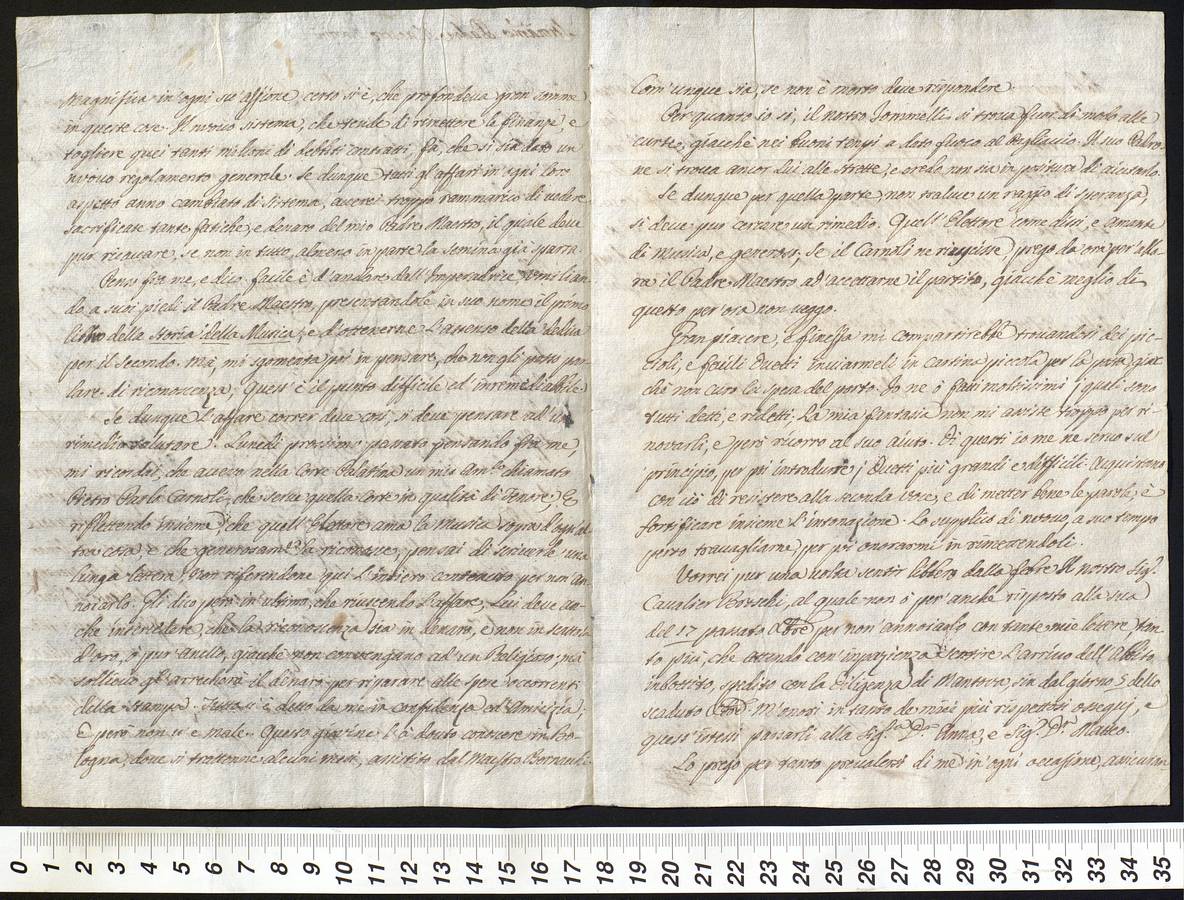 magnifica in ogni su' affione, certo si è, che profondeva gran somme
in queste cose. Il nuovo sistema, che tende di rimettere le finanze, e
togliere quei tanti milioni di debiti contratti, fà, che si sia dato un
nuovo regolamento generale. Se dunque tutti gl'affari in ogni loro
aspetto anno cambiato di sistema, averei troppo rammarico di vedere
sacrificate tante fatiche, e denaro del mio Padre Maestro, il quale deve
pur ricavare, se non in tutto, almeno in parte la semina già sparsa.
Penso frà me, e dico, facile è d'andare dall'Imperadrice umilian-
do a suoi piedi il Padre Maestro, presentandole in suo nome il primo
libro della Storia della Musica, e d'ottenerne l'assenso della dedica
per il secondo. Mà, mi sgomento poi in pensare, che non gli posso par-
lare di riconoscenza; Quest'è il punto difficile ed inremediabile
Se dunque l'affare correr deve così, si deve pensare ad un
rimedio salutare. Lunedì prossimo passato pensando frà me,
mi ricordai, che avevo nella Corte Palatina un mio Am.co chiamato
Pietro Paolo Carnoli, che serve quella Corte in qualità di Tenore; E
riflettendo insieme, che quell'Elettore ama la Musica sopra d'ogn'al-
tra cosa, e che generosam.te la riconosce, pensai di scriverle una
lunga lettera, non riferendone qui l'intiero contenuto per non an-
noiarlo. Gli dico però in ultimo, che riuscendo l'affare, Lui deve an-
che intendere, che la riconoscenza sia in denaro, e non in scattola
d'oro, ò pur anello, giacchè non convengano ad un Religioso; mà
sollievo gl'arrecherà il denaro per riparare alle spese occorrenti
della Stampa. Tutto si è detto da me in confidenza ed Amicizia,
E però non v'è male. Questo giovine l'à dovuto conoscere in Bo-
logna, dove si trattenne alcuni mesi, assistito dal Maestro Bernacch-
Com'unque sia, se non è morto deve rispondere.
Per quanto io sò, il nostro Jommelli si trova fuor di modo alle
curte, giacchè nei buoni tempi a dato fuoco al Pagliaccio. Il suo Padro-
ne si trova ancor Lui alle strette, e credo non sia in positura di aiutarlo.
Se dunque per quella parte non traluce un raggio di speranza,
si deve pur cercare un rimedio. Quell'Elettore come dissi, è amante
di Musica, e generoso, Se il Carnoli ne riuscisse, prego da ora per allo-
ra il Padre Maestro ad'accettarne il partito, giacchè meglio di
questo per ora non veggo.
Gran piacere, e finezza mi compartirebbe trovandosi dei pic-
cioli, e facili Duetti inviarmeli in cartina piccola per la posta, giac-
chè non curo la spesa del porto. Io ne ò fatti moltissimi i quali sono
tutti detti, e ridetti. La mia fantasia non mi assiste troppo per ri-
novarli, e però ricorro al suo aiuto. Di questi io me ne servo sul
principio, per poi introdurre i Duetti più grandi e difficili. Acquistano
con ciò di resistere alla seconda voce, e di metter bene le parole, e
fortificare insieme l'intonazione. Lo supplico di nuovo, a suo tempo
porto travagliarne, per poi onorarmi in rimettendoli.
Vorrei pur una volta sentir libero dalla febre il nostro Sig.r
Cavalier Broschi, al quale non ò per anche risposto alla sua
del 17 passato per non annoiarlo con tante mie lettere, tan-
to più, che attendo con inpazienza sentire l'arrivo dell'Abito
inbottito, spedito con la Diligenza di Mantova, sin dal giorno 5 dello
scaduto M'onori in tanto de miei più rispettosi ossequi, e
quest'istessi passarli alla Sig.ra D.a Anna, e Sig.r D.n Matteo.
Lo prego per tanto prevalersi di me in ogni occasione, assicuran-
0 1 2 3 4 5 6 7 8 9 10 11 12 13 14 15 16 17 18 19 20 21 22 23 24 25 26 27 28 29 30 31 32 33 34 35